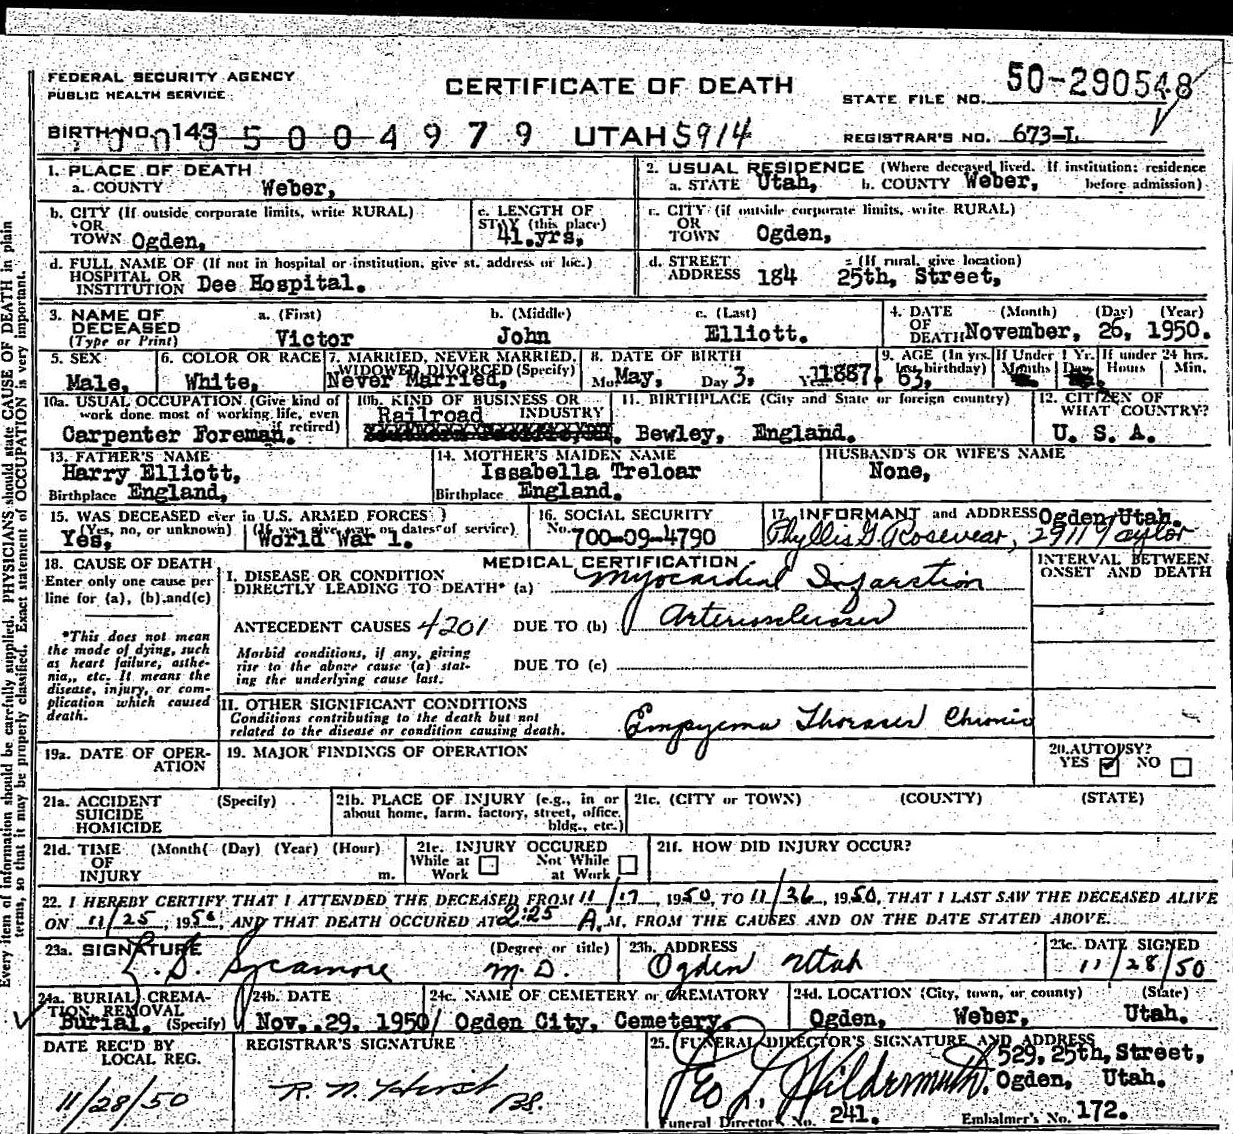 FEDERAL SECURITY AGENCY
PUBLIC HEALTH SERVICE
CERTIFICATE OF DEATH
STATE FILE NO. 50-290548
BIRTH NO. 143
5004979 UTAH 5914
REGISTRAR'S NO. 673-L
1. PLACE OF DEATH
a. COUNTY Weber,
2. USUAL RESIDENCE (Where deceased lived. If institution: residence before admission)
a. STATE Utah, b. COUNTY Weber,
b. CITY (If outside corporate limits, write RURAL)
OR
TOWN Ogden,
c. LENGTH OF
STAY (this place)
41.yrs,
c. CITY (if outside corporate limits, write RURAL)
OR
TOWN Ogden,
d. FULL NAME OF (If not in hospital or institution, give st. address or loc.)
HOSPITAL OR
INSTITUTION Dee Hospital.
d. STREET (If rural, give location)
ADDRESS 184 25th, Street,
3. NAME OF
DECEASED
(Type or Print)
a. (First) b. (Middle) c. (Last)
Victor John Elliott.
4. DATE (Month) (Day) (Year)
OF
DEATH November, 26, 1950.
5. SEX
Male,
6. COLOR OR RACE
White,
7. MARRIED, NEVER MARRIED,
WIDOWED DIVORCED (Specify)
Never Married,
8. DATE OF BIRTH
Mo. May, Day 3, Year 1887.
9. AGE (In yrs.
last birthday)
63,
If Under 1 Yr.
Months Days
If under 24 hrs.
Hours Min.
10a. USUAL OCCUPATION (Give kind of
work done most of working life, even
if retired)
Carpenter Foreman.
10b. KIND OF BUSINESS OR
INDUSTRY
Railroad
11. BIRTHPLACE (City and State or foreign country)
Bewley, England.
12. CITIZEN OF
WHAT COUNTRY?
U. S. A.
13. FATHER'S NAME
Harry Elliott,
Birthplace England,
14. MOTHER'S MAIDEN NAME
Issabella Treloar
Birthplace England.
HUSBAND'S OR WIFE'S NAME
None,
15. WAS DECEASED ever in U.S. ARMED FORCES?
(Yes, no, or unknown) (If yes give war or dates of service)
Yes, World War 1.
16. SOCIAL SECURITY
No. 700-09-4790
17. INFORMANT and ADDRESS Ogden, Utah.
Phyllis G. Rosewear, 2911 Taylor
18. CAUSE OF DEATH
Enter only one cause per
line for (a), (b) and (c)
*This does not mean
the mode of dying, such
as heart failure, asthe-
nia,, etc. It means the
disease, injury, or com-
plication which caused
death.
MEDICAL CERTIFICATION
I. DISEASE OR CONDITION
DIRECTLY LEADING TO DEATH* (a) Myocardial Infarction
ANTECEDENT CAUSES 4201 DUE TO (b) Arteriosclerosis
Morbid conditions, if any, giving
rise to the above cause (a) stat-
ing the underlying cause last.
DUE TO (c)
II. OTHER SIGNIFICANT CONDITIONS
Conditions contributing to the death but not
related to the disease or condition causing death.
Empyema Thoraces Chronic
INTERVAL BETWEEN
ONSET AND DEATH
19a. DATE OF OPER-
ATION
19. MAJOR FINDINGS OF OPERATION
20. AUTOPSY?
YES NO
21a. ACCIDENT (Specify)
SUICIDE
HOMICIDE
21b. PLACE OF INJURY (e.g., in or
about home, farm, factory, street, office,
bldg., etc.)
21c. (CITY or TOWN) (COUNTY) (STATE)
21d. TIME (Month) (Day) (Year) (Hour)
OF
INJURY m.
21e. INJURY OCCURED
While at Work Not While at Work
21f. HOW DID INJURY OCCUR?
22. I HEREBY CERTIFY THAT I ATTENDED THE DECEASED FROM 11/17, 1950 TO 11/26, 1950, THAT I LAST SAW THE DECEASED ALIVE
ON 11/25, 1950, AND THAT DEATH OCCURED AT 2:25 A.M. FROM THE CAUSES AND ON THE DATE STATED ABOVE.
23a. SIGNATURE (Degree or title)
Sycamore M.D.
23b. ADDRESS
Ogden Utah
23c. DATE SIGNED
11/28/50
24a. BURIAL, CREMA-
TION, REMOVAL
Burial. (Specify)
24b. DATE
Nov. 29. 1950
24c. NAME OF CEMETERY or CREMATORY
Ogden City, Cemetery.
24d. LOCATION (City, town, or county) (State)
Ogden, Weber, Utah.
DATE REC'D BY
LOCAL REG.
11/28/50
REGISTRAR'S SIGNATURE
25. FUNERAL DIRECTOR'S SIGNATURE AND ADDRESS
529, 25th, Street,
Geo L. Wildermuth. Ogden, Utah.
Funeral Director No. 241. Embalmer's No. 172.
Every item of information should be carefully supplied. PHYSICIANS should state CAUSE OF DEATH in plain
terms, so that it may be properly classified. Exact statement of OCCUPATION is very important.